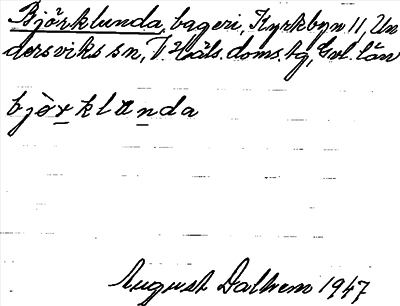 Björklunda, bageri, Kyrkbyn 11, Un
dersviks sn, V. Häls. doms. tg, Gvl. län
bjòrklunda
August Dalhem 1947